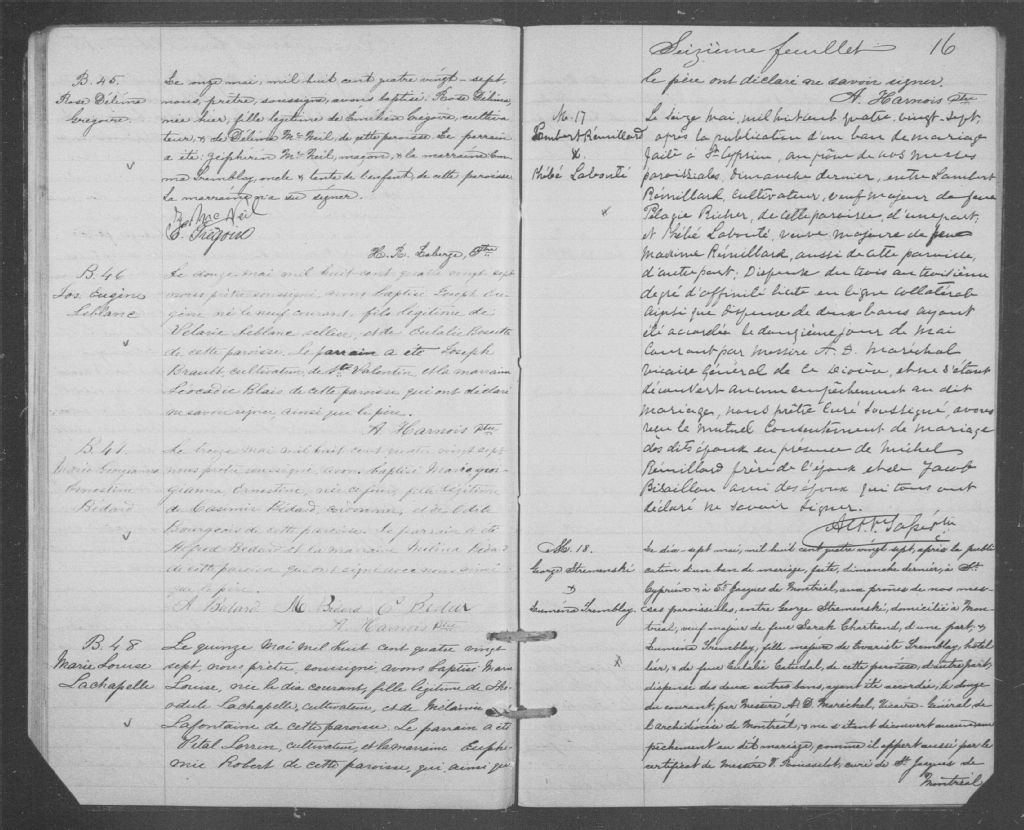 B. 45
Rose Délima
Grégoire.
Le onze mai, mil huit cent quatre vingt-sept,
nous, prêtre, soussigné, avons baptisé Rose Délima,
née hier, fille légitime de Grégoire, cultiva
teur, & de Délima McNeil, de cette paroisse. Le parrain
a été Zéphirin McNeil, maçon, & la marraine Em
ma Tremblay, oncle & tante de l'enfant, de cette paroisse.
La marraine n'a su signer.
McNeil
Grégoire
Laberge, Ptre
B. 46
Jos. Eugène
Leblanc
Le douze mai mil huit cent quatre vingt sept
nous prêtre soussigné, avons baptisé Joseph Eu-
gène né le neuf courant, fils légitime de
Leblanc sellier, et de Eulalie
de cette paroisse. Le parrain a été Joseph
Brault, cultivateur, de St Valentin, et la marraine
Léocadie Blais de cette paroisse, qui ont déclaré
ne savoir signer, ainsi que le père.
A. Harnois Ptre
B. 47.
Marie Georgianna
Ernestine
Bédard
Le treize mai mil huit cent quatre vingt sept
nous prêtre soussigné, avons baptisé Marie Geor-
gianna Ernestine, née ce jour, fille légitime
de Casimir Bédard, et de Odile
Bourgeois de cette paroisse. Le parrain a été
Alfred Bédard et la marraine Mélina Bédard
de cette paroisse qui ont signé avec nous ainsi
que le père.
A. Bédard M. Bédard C. Bédard
A. Harnois Ptre
B. 48
Marie Louise
Lachapelle
Le quinze Mai mil huit cent quatre vingt
sept, nous prêtre, soussigné avons baptisé Marie
Louise, née le dix courant, fille légitime de Thé
odule Lachapelle, cultivateur, et de Mélanie
Lafontaine de cette paroisse. Le parrain a été
Vital Lorrin, cultivateur, et la marraine Euphé
mie Robert de cette paroisse, qui, ainsi que
Seizième feuillet 16
le père ont déclaré ne savoir signer.
A. Harnois Ptre
M. 17
Lambert Rémillard
&
Phébé Labonté
Le seize Mai, mil huit cent quatre-vingt-sept,
après la publication d'un ban de mariage
faite à St Cyprien, au prône de nos messes
paroissiales, dimanche dernier, entre Lambert
Rémillard, cultivateur, veuf majeur de feue
Pélagie Richer, de cette paroisse, d'une part;
et Phébé Labonté, veuve majeure de feu
Rémillard, aussi de cette paroisse,
d'autre part; Dispense du trois au troisième
degré d'affinité licite en ligne collatérale
ainsi que dispense de deux bans ayant
été accordée le douzième jour de Mai
courant par Messire A. D. Maréchal
vicaire Général de ce Diocèse, et ne s'étant
découvert aucun empêchement au dit
mariage, nous prêtre Curé soussigné, avons
reçu le mutuel consentement de mariage
des dits époux en présence de Michel
Rémillard frère de l'époux et de Jacob
Bisaillon ami des époux qui tous ont
déclaré ne savoir signer.
M. 18.
George Stremenski
&
Euménie Tremblay.
Le dix-sept mai, mil huit cent quatre vingt sept, après la publi
cation d'un ban de mariage, faite, dimanche dernier, à St
Cyprien & à St Jacques de Montréal, aux prônes de nos mes-
ses paroissiales, entre George Stremenski, domicilié à Mon
tréal, veuf majeur de feue Sarah Chartrand, d'une part, &
Euménie Tremblay, fille majeure de Evariste Tremblay, hôtel
lier, & de feue Eulalie de cette paroisse, d'autre part;
dispense des deux autres bans, ayant été accordée, le douze
du courant, par Messire A. D. Maréchal, Vicaire-Général de
l'archidiocèse de Montréal, & ne s'étant découvert aucun em
pêchement au dit mariage, comme il appert aussi par le
certificat de Messire V. Rousselot, curé de St Jacques de
Montréal